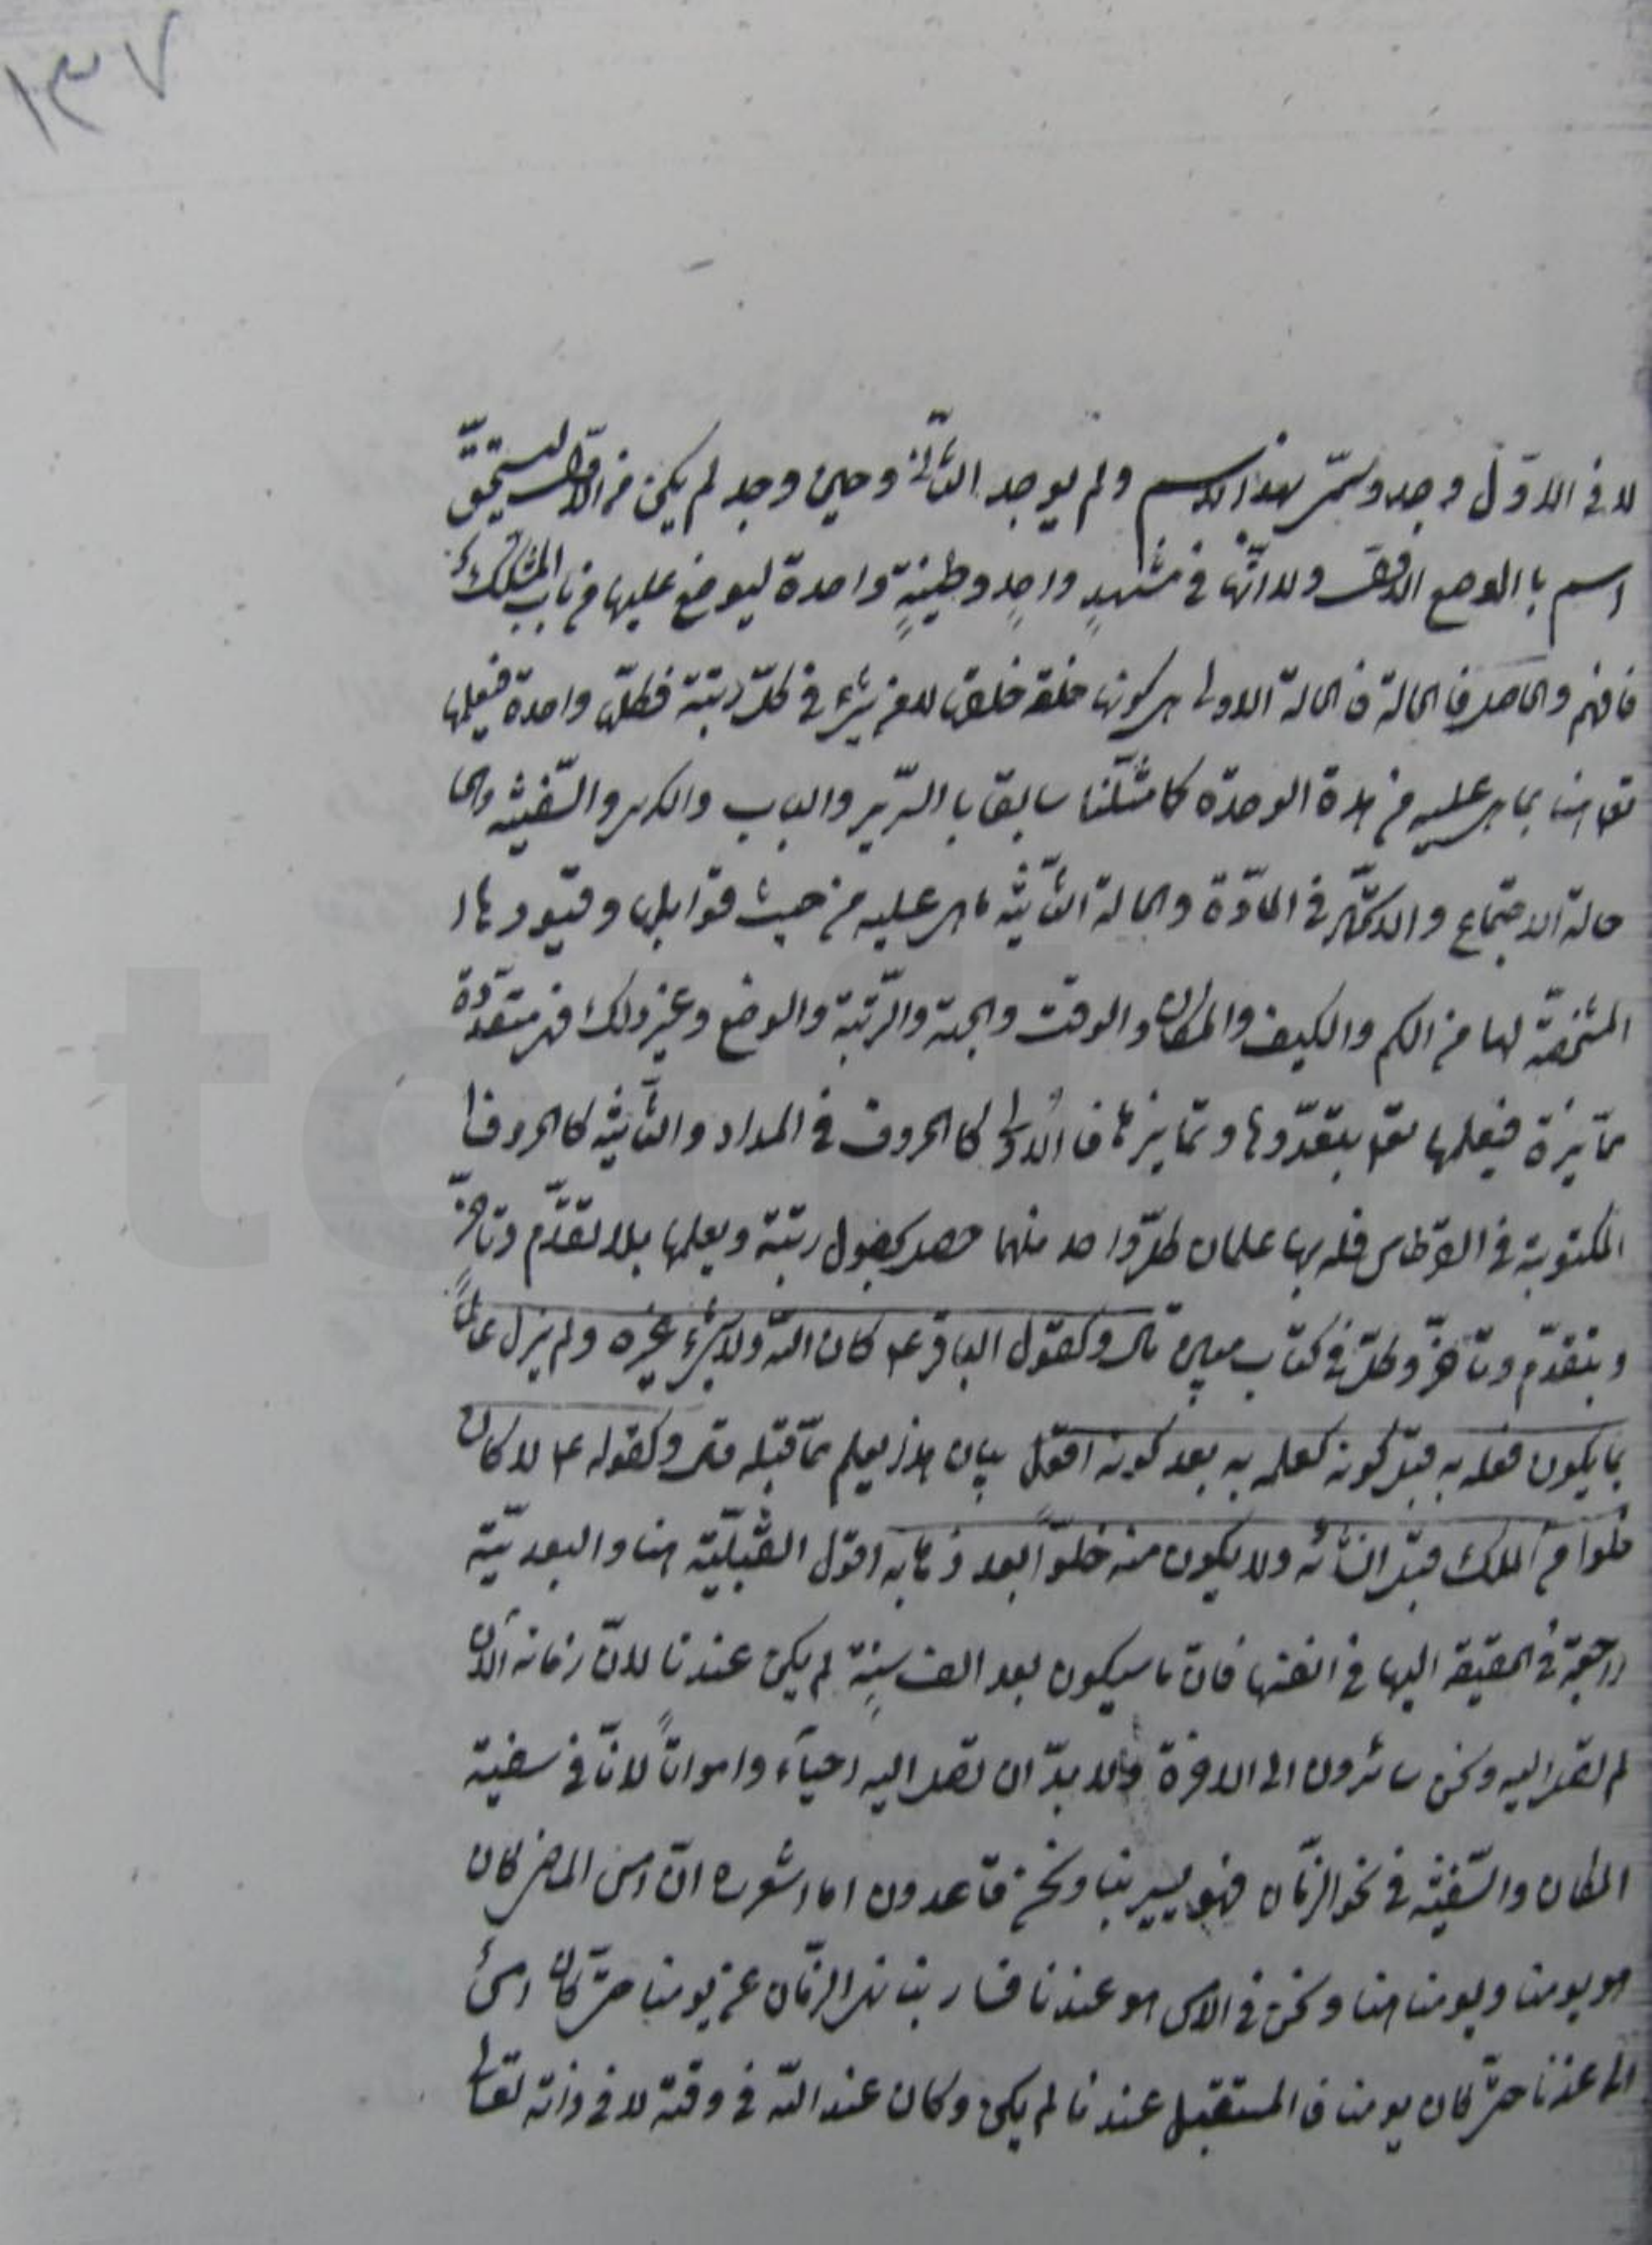 ١٣٧
لان الاوّل وجد وسمّى بهذا الاسم ولم يوجد الثانى وحين وجد لم يكن من الاوّل ليستحقّ
اسم بالوضع الاوّل ولا انّها فى مشهدٍ واحدٍ وطينةٍ واحدة ليوضع عليها من باب المشكّك
فافهم والحاصل فالحالة الاولى هى كونها خلقه خلقها لا من شىء فى كلّ رتبة فكلّها واحدة فيعلمها
تعا هنا بما هى عليه من هذه الوحدة كما مثّلنا سابقا بالسّرير والباب والكرسى والسّفينه وهى
حالة الاجتماع والاتّحاد فى المادّة والحالة الثّانيه ما هى عليه من حيث قوابلها وقيودها
المشخّصة لها من الكم والكيف والمكان والوقت والجهة والرّتبة والوضع وغير ذلك فهى متعدّدة
متمايزة فيعلمها تعا بتعدّدها وتمايزها فالاولى كالحروف فى المداد والثّانيه كالحروف
المكتوبة فى القرطاس فله بها علمان كلّ واحد منهما حصل بحصول رتبته ويعلمها بلا تقدّم وتاخّر
وبتقدّم وتاخّر وكلّ فى كتاب مبين قال وكقول الباقر ع كان اللّه ولا شىء غيره ولم يزل عالماً
بما يكون فعلمه به قبل كونه كعلمه به بعد كونه اقول بيان هذا يعلم ممّا قبله قال وكقوله ع لا كان
خلوا من الملك قبل انشائه ولا يكون منه خلوّاً بعد ذهابه اقول القبليّة هنا والبعديّة
راجعة فى الحقيقة اليها فى انفسها فانّ ما سيكون بعد الف سنةٍ لم يكن عندنا لانّ زمانه الآن
لم نصل اليه ونحن سائرون الى الاخرة ولا بدّ ان نصل اليه احياء وامواتاً لانّا فى سفينة
المكان والسّفينه فى نحو الزّمان فهو يسير بنا ونحن قاعدون اما تشعر ان امس الماضى كان
هو يومنا ويومنا هنا ونحن فى الامس هو عندنا فسار بنا نهر الزّمان عن يومنا حتّى كان امس
الى عندنا حتّى كان يومنا فالمستقبل عندنا لم يكن وكان عند اللّه فى وقته لا فى ذاته تعالى